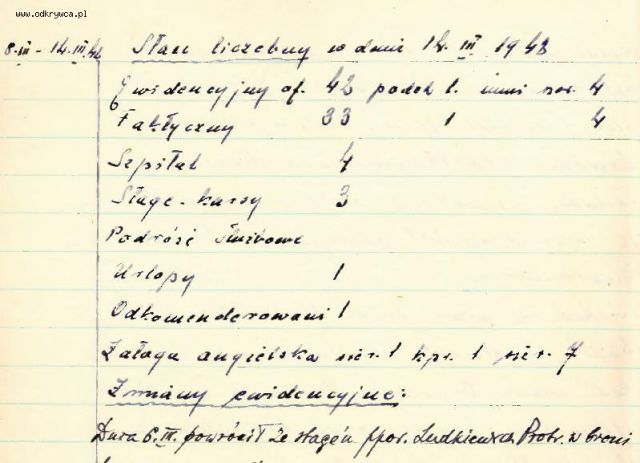 www.odkrywca.pl
8.III - 14.III.48 Stan liczebny w dniu 14. III 1948
Ewidencyjny of. 42 podch 1. inni szer. 4
Faktyczny 33 1 4
Szpital 4
Stage - kursy 3
Podróże służbowe
Urlopy 1
Odkomenderowani 1
Załoga angielska sier. 1 kpr. 1 szer. 7
Zmiany ewidencyjne:
Dnia 6.III. powrócił ze stage'u ppor. Ludkiewicz Piotr. w broni